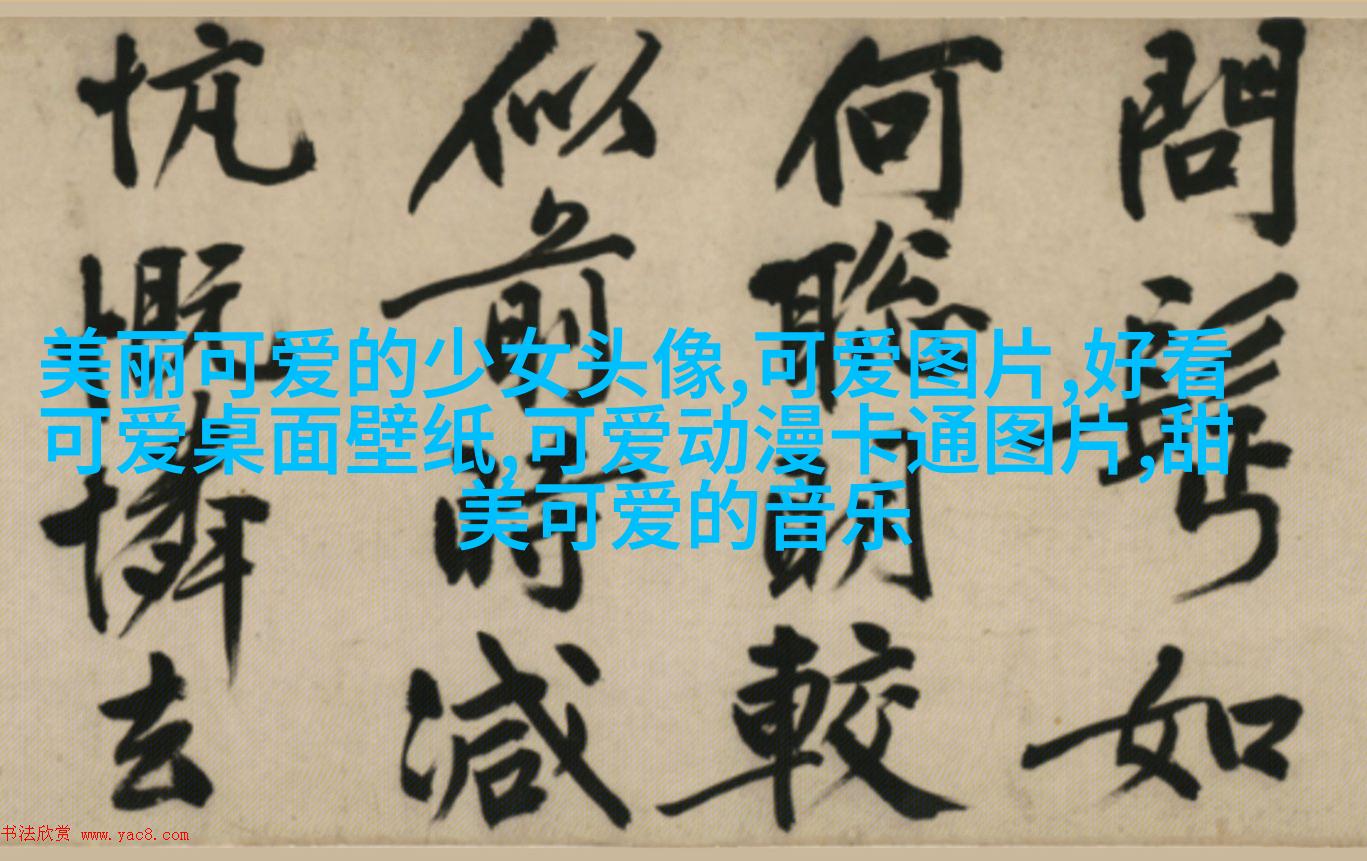 問如
何聰明較
似前時減
忼慨憐去
美丽可爱的少女头像,可爱图片,好看
可爱桌面壁纸,可爱动漫卡通图片,甜
美可爱的音乐
书法欣赏 www.yac8.com